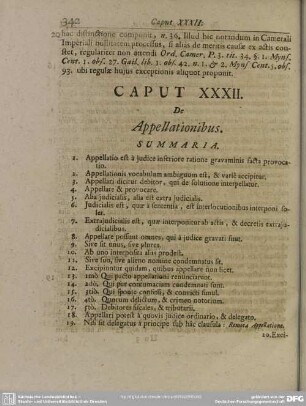 342 Caput XXXII.
hac distinctione componit, n. 39, Illud hic notandum in Camerali
Imperiali nullitatem processus, si alias de meritis causæ ex actis con-
stet, regulariter non attendi Ord. Camer. P. 3. tit. 34. §. 1. Mynf.
Cent. 1. obs. 27. Gail. lib. 1. obs. 42. n. 1. & 2. Mynf Cent. 5. obs.
93. ubi regulæ hujus exceptionis aliquot proponit.
CAPUT XXXII.
De
Appellationibus.
SUMMARIA.
1. Appellatio est à judice inferiore ratione gravaminis facta provoca-
tio.
2. Appellationis vocabulum ambiguum est, & variè accipitur.
3. Appellari dicitur debitor, qui de solutione interpellatur.
4. Appellare & provocare.
5. Alia judicialis, alia est extra judicialis.
6. Judicialis est, quæ à sententia, est interlocutionibus interponi so-
let.
7. Extrajudicialis est, quæ interponitur ab actis, & decretis extraju-
dicialibus.
8. Appellare possunt omnes, qui à judice gravati sunt.
9. Sive sit unus, sive plures.
10. Ab uno interposita aliis prodest.
11. Sive suo, sive alieno nomine condemnatus sit.
12. Excipiuntur quidam, quibus appellare non licet.
13. 1mò Qui pacto appellationi renunciarunt.
14. 2dò, Qui per contumaciam condemnati sunt.
15. 3tiò. Qui sponte confessi, & convicti sunt.
16. 4tò. Quorum delictum, & crimen notorium.
17. 5tò. Debitores fiscales, & tributarii.
18. Appellari potest à quovis judice ordinario, & delegato.
19. Nisi sit delegatus à principe sub hac clausula: Remota Appellatione.
20. Exci-